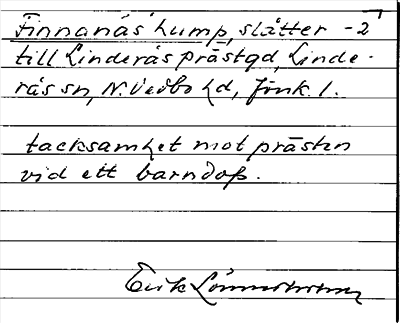 Finnanäs lump, slåtter -2
till Linderås prästgd, Linde-
rås sn, N. Vedbo hd, Jönk. l.
tacksamhet mot prästen
vid ett barndop.
Erik